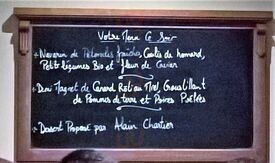 Votre Menu Ce Soir
Navarin de Palourdes fraîches Cortès de homard,
Petits légumes Bio et fleur de Caviar
Demi Magret de Canard Roti au Miel, Croustillant
de Pommes de terre et Poires Poêlées
Dessert Proposé par Alain Chartier